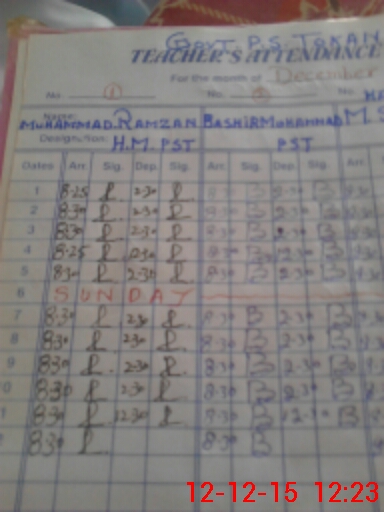 GOVT P.S. TOKAN
TEACHER'S ATTENDANCE
For the month of December
No 1 No. 2
Name:
MUHAMMAD.RAMZAN BASHIR MUHAMMAD M.S
Designation: H.M. PST PST
Dates Arr. Sig. Dep. Sig. Arr. Sig. Dep. Sig. Arr.
1 8-25 2-30 8-30 B 2-30 B
2 8-30 2-30 8-30 B 2-30 B
3 8-30 2-30 8-30 B 2-30 B
4 8-25 2-30 8-30 B 2-30 B
5 8-30 2-30 8-30 B 2-30 B
6 SUNDAY
7 8-30 2-30 8-30 B 2-30 B
8 8-30 2-30 8-30 B 2-30 B
9 8-30 2-30 8-30 B 2-30 B
0 8-30 2-30 8-30 B 2-30 B
1 8-30 12-30 8-30 B 12-30 B
8-30 8-30 B
12-12-15 12:23